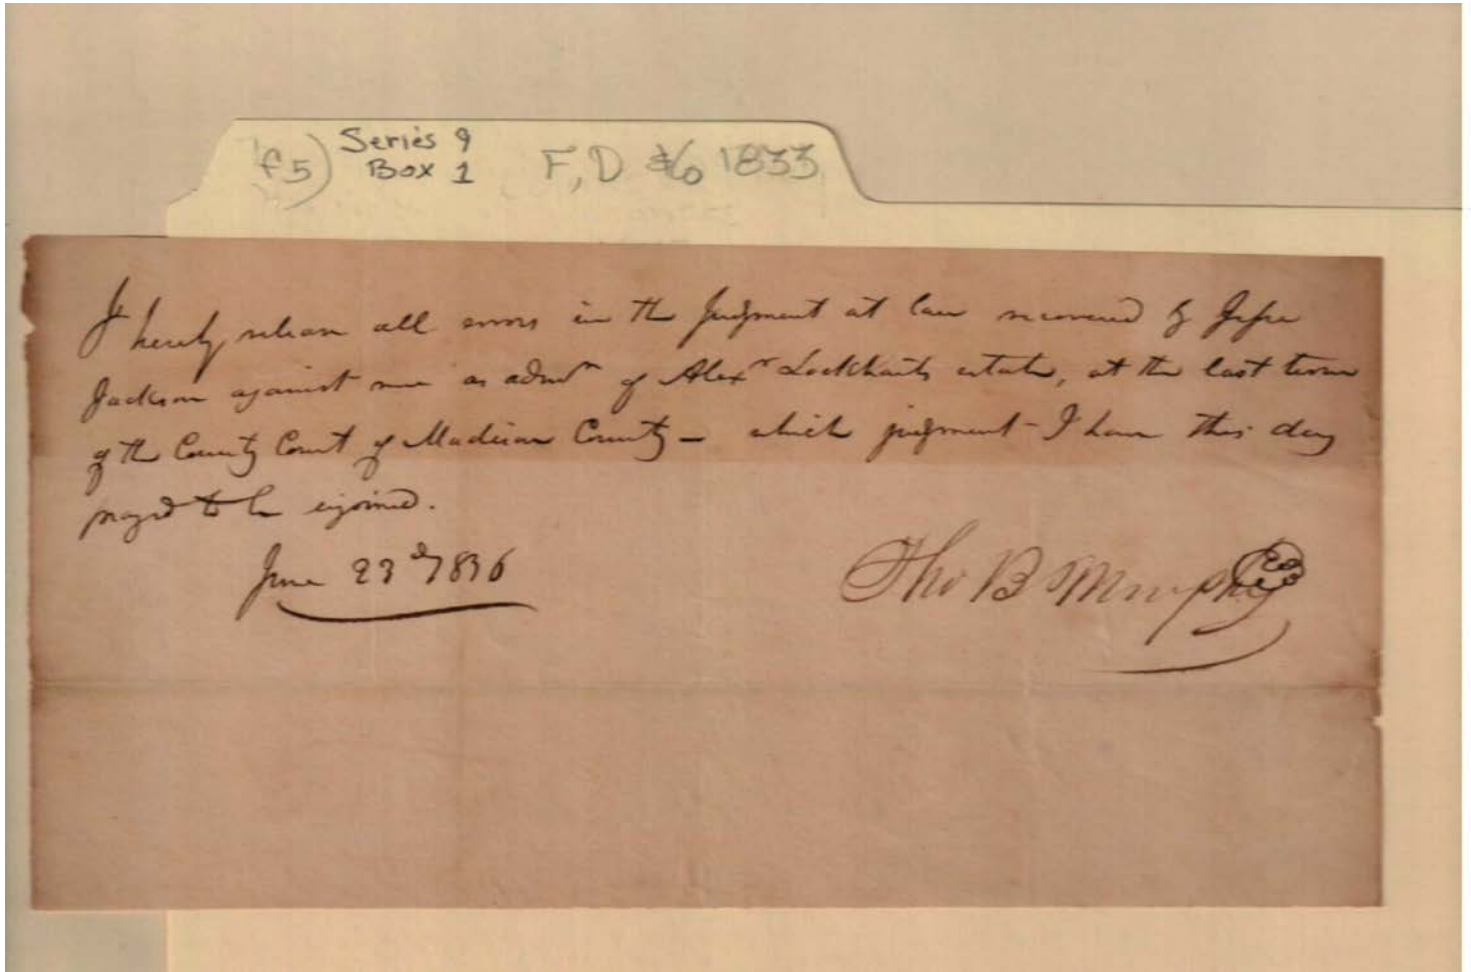 f5) Series 9
Box 1
F, D & Co 1833
I hereby release all errors in the Judgment at law recovered by Jesse
Jackson against me as admr of Alexr Lockharts estate, at the last term
of the County Court of Madison County – which judgment – I have this day
prayed to be enjoined.
June 23d 1836
Tho B Murphy